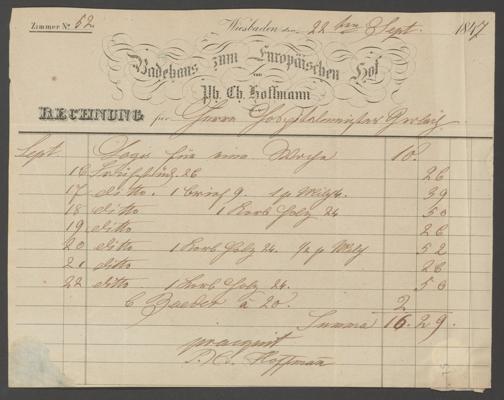 Zimmer No. 52.
Wiesbaden den 22ten Sept. 1847
Badehaus zum Europäischen Hof
von
Ph. Ch. Hoffmann
RECHNUNG für Herrn
Sept. Logis für eine Woche 10.
16 Frühstück 26 26
17 ditto. 1 Brief 9. 1 39
18 ditto 1 Korb Holz 24 50
19 ditto 26
20 ditto 1 Korb Holz 24. 52
21 ditto 26
22 ditto 1 Korb Holz 24. 50
6 Baeder à 20. 2
Summa 16. 29.
Hoffmann